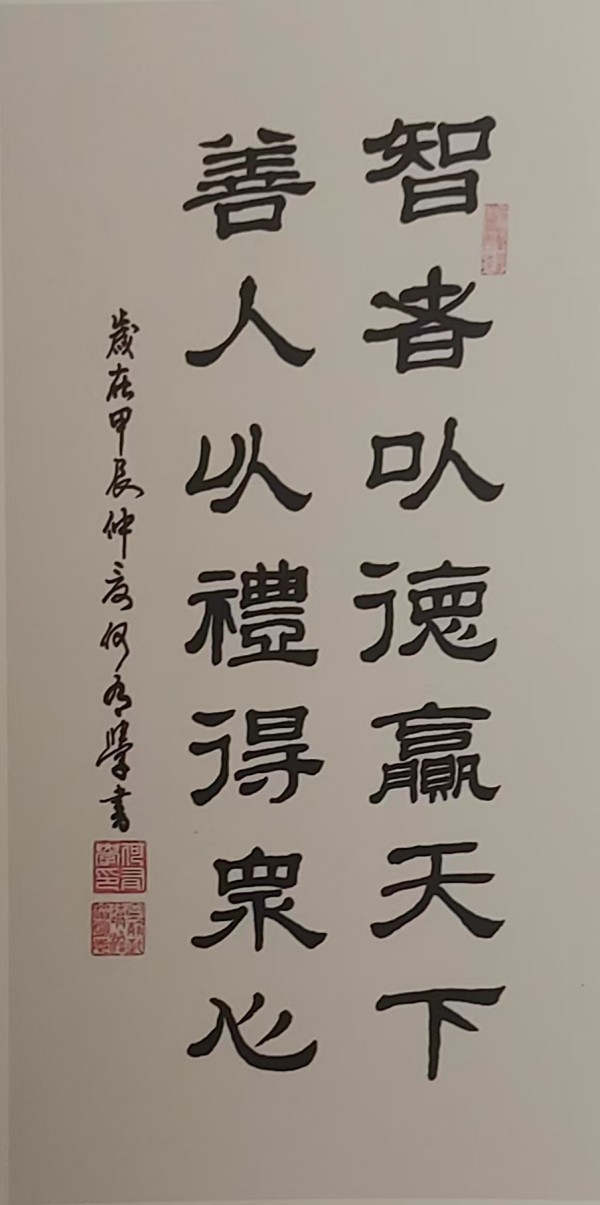 智者以德贏天下
善人以禮得眾心
歲在甲辰仲夏何有學書